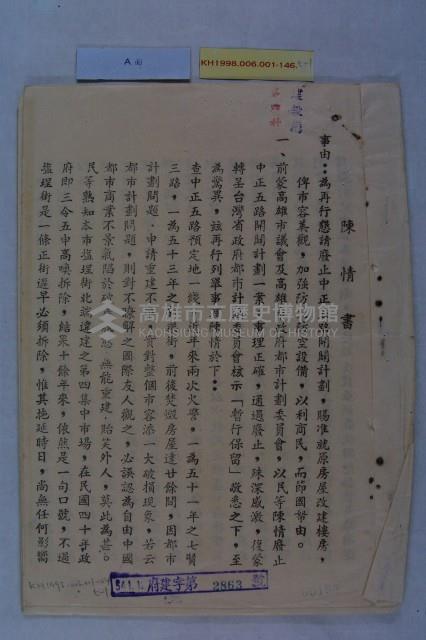 A面
KH1998.006.001-146
建設局
第四科
陳情書
事由:為再行懇請廢止中正五路開闢計劃,賜准就原房屋改建樓房,
俾市容美觀,加強防空設備,以利商民,而節國帑由。
一、前蒙高雄市議會及高雄市政府都市計劃委員會,以民等陳情廢止
中正五路開闢計劃一案,事理正確,通過廢止,殊深感激,復蒙
轉呈台灣省政府都市計劃委員會核示「暫行保留」敬悉之下,至
為驚異,茲再行列舉事實陳情於下:
查中正五路預定地一線,近年來兩次火警,一為五十一年之七賢
三路,一為五十三年之鹽埕街,前後焚燬房屋達廿餘間,因都市
計劃問題,申請重建不准,實對整個市容添一大破損現象,若云
都市計劃問題,則對不瞭解之國際友人觀之,必誤認為自由中國
都市商業不景氣陷於破產,無能重建,貽笑外人,莫此為甚。
民等熟知本市鹽埕街北端違建之第四集中市場,在民國四十年政
府即三令五申高喚拆除,結果十餘年來,依然是一句口號,不過
鹽埕街是一條正街遲早必須拆除,惟其拖延時日,尚無任何影響
高雄市立歷史博物館
KAOHSIUNG MUSEUM OF HISTORY
54.1.
府建字第 2863 號